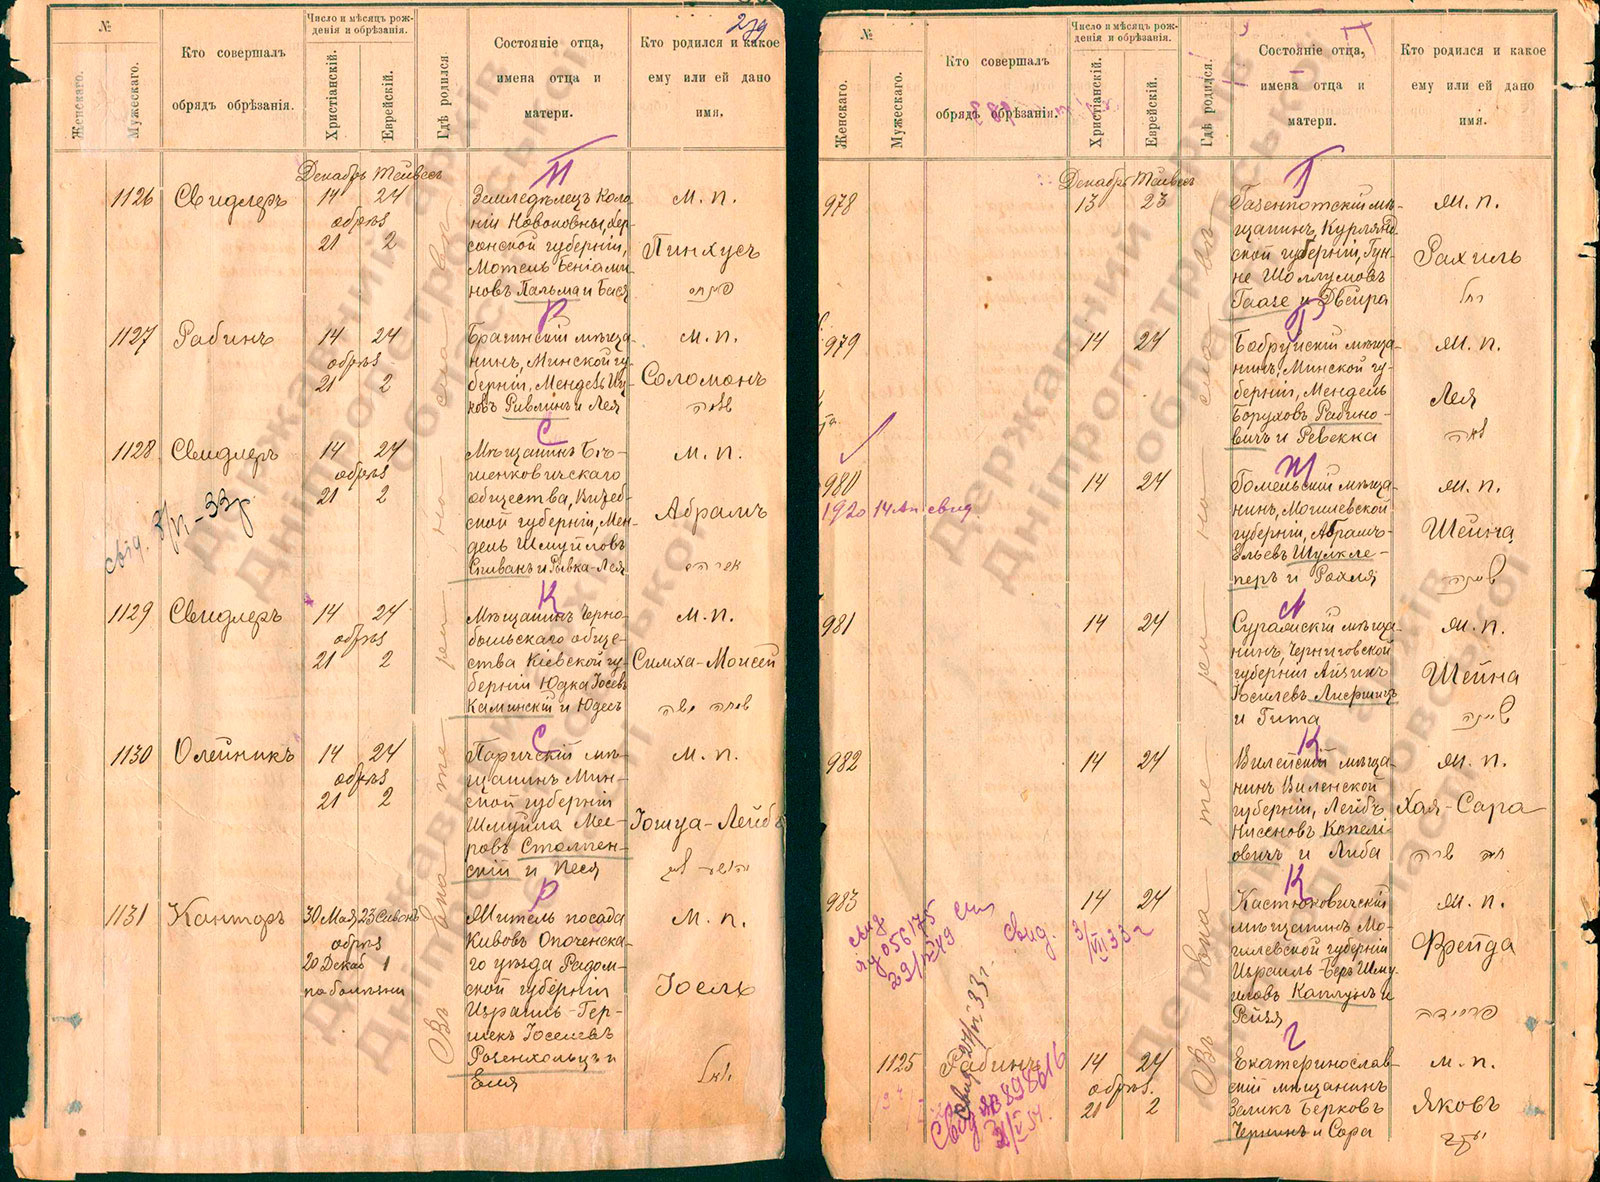 279
№
Женскаго.
Мужескаго.
Кто совершалъ
обрядъ обрѣзанія.
Число и мѣсяцъ рож-
денія и обрѣзанія.
Христіанскій.
Еврейскій.
Гдѣ родился
Состояніе отца,
имена отца и
матери.
Кто родился и какое
ему или ей дано
имя.
Декабрь Тейвесъ
П
1126 Свидлеръ 14 24
обрѣз
21 2
Земледѣлецъ Коло-
ніи Новоковны, Хер-
сонской губерніи,
Мотель Беніами-
новъ Пальма и Бася
м. п.
Пинхусъ
פינחס
Р
1127 Рабинъ 14 24
обрѣз
21 2
Брагинскій мѣща-
нинъ, Минской гу-
берніи, Мендель Иц-
ковъ Ривлинъ и Лея
м. п.
Соломонъ
שלמה
С
1128 Свидлеръ 14 24
обрѣз
21 2
Мѣщанинъ Бѣ-
шенковичскаго
общества, Витеб-
ской губерніи, Мен-
дель Шмуйловъ
Спиванъ и Рывка-Лея
м. п.
Абрамъ
אברהם
свид. 3/VI-33г
К
1129 Свидлеръ 14 24
обрѣз
21 2
Мѣщанинъ Черно-
быльскаго обще-
ства Кіевской гу-
берніи Юдка Іосевъ
Каминскій и Юдесъ
м. п.
Симха-Моисей
שמחה משה
С
1130 Олейникъ 14 24
обрѣз
21 2
Паричскій мѣ-
щанинъ Мин-
ской губерніи
Шмуйла Мее-
ровъ Столпен-
скій и Песя
м. п.
Іошуа-Лейбъ
יהושע לייב
Р
1131 Канторъ 30 Мая 23 Сивонъ
обрѣз
20 Декаб 1
по болѣзни
Житель посада
Кивовъ Опоченска-
го уѣзда Радом-
ской губерніи
Израиль-Гер-
шекъ Іоселевъ
Розенхольцъ и
Еня
м. п.
Іоель
יואל
Въ Екатеринославѣ
№
Женскаго.
Мужескаго.
Кто совершалъ
обрядъ обрѣзанія.
Число и мѣсяцъ рож-
денія и обрѣзанія.
Христіанскій.
Еврейскій.
Гдѣ родился.
Состояніе отца,
имена отца и
матери.
Кто родился и какое
ему или ей дано
имя.
Декабрь Тейвесъ
Г
978 13 23
Газенпотскій мѣ-
щанинъ, Курлянд-
ской губерніи, Гун-
не Шоллумовъ
Гаазе и Двейра
ж. п.
Рахиль
רחל
Р
979 14 24
Бобруйскій мѣща-
нинъ, Минской гу-
берніи, Мендель
Боруховъ Рабино-
вичъ и Ревекка
ж. п.
Лея
לאה
Ш
980 14 24
1920 14 Ап свид.
Гомельскій мѣща-
нинъ, Могилевской
губерніи, Абрамъ-
Ельевъ Шулкле-
перъ и Рохля
ж. п.
Шейна
Л
981 14 24
Суражскій мѣща-
нинъ, Черниговской
губерніи Айзикъ
Іосилевъ Лифшицъ
и Гита
ж. п.
Шейна
שיינה
К
982 14 24
Вилейскій мѣща-
нинъ Виленской
губерніи, Лейбъ
Нисоновъ Капели-
овичъ и Либа
ж. п.
Хая-Сара
חיה שרה
К
983 14 24
Свид.
3/VII 33 г
Костюковичскій
мѣщанинъ Мо-
гилевской губерніи
Израиль Беръ Шму-
иловъ Каплунъ и
Рейзя
ж. п.
Фрейда
פריידה
Г
1125 Рабинъ 14 24
обрѣз.
21 2
Екатеринослав-
скій мѣщанинъ
Зеликъ Берковъ
Чернинъ и Сора
м. п.
Яковъ
יעקב
Въ Екатеринославѣ
Державний архів
Дніпропетровської
області